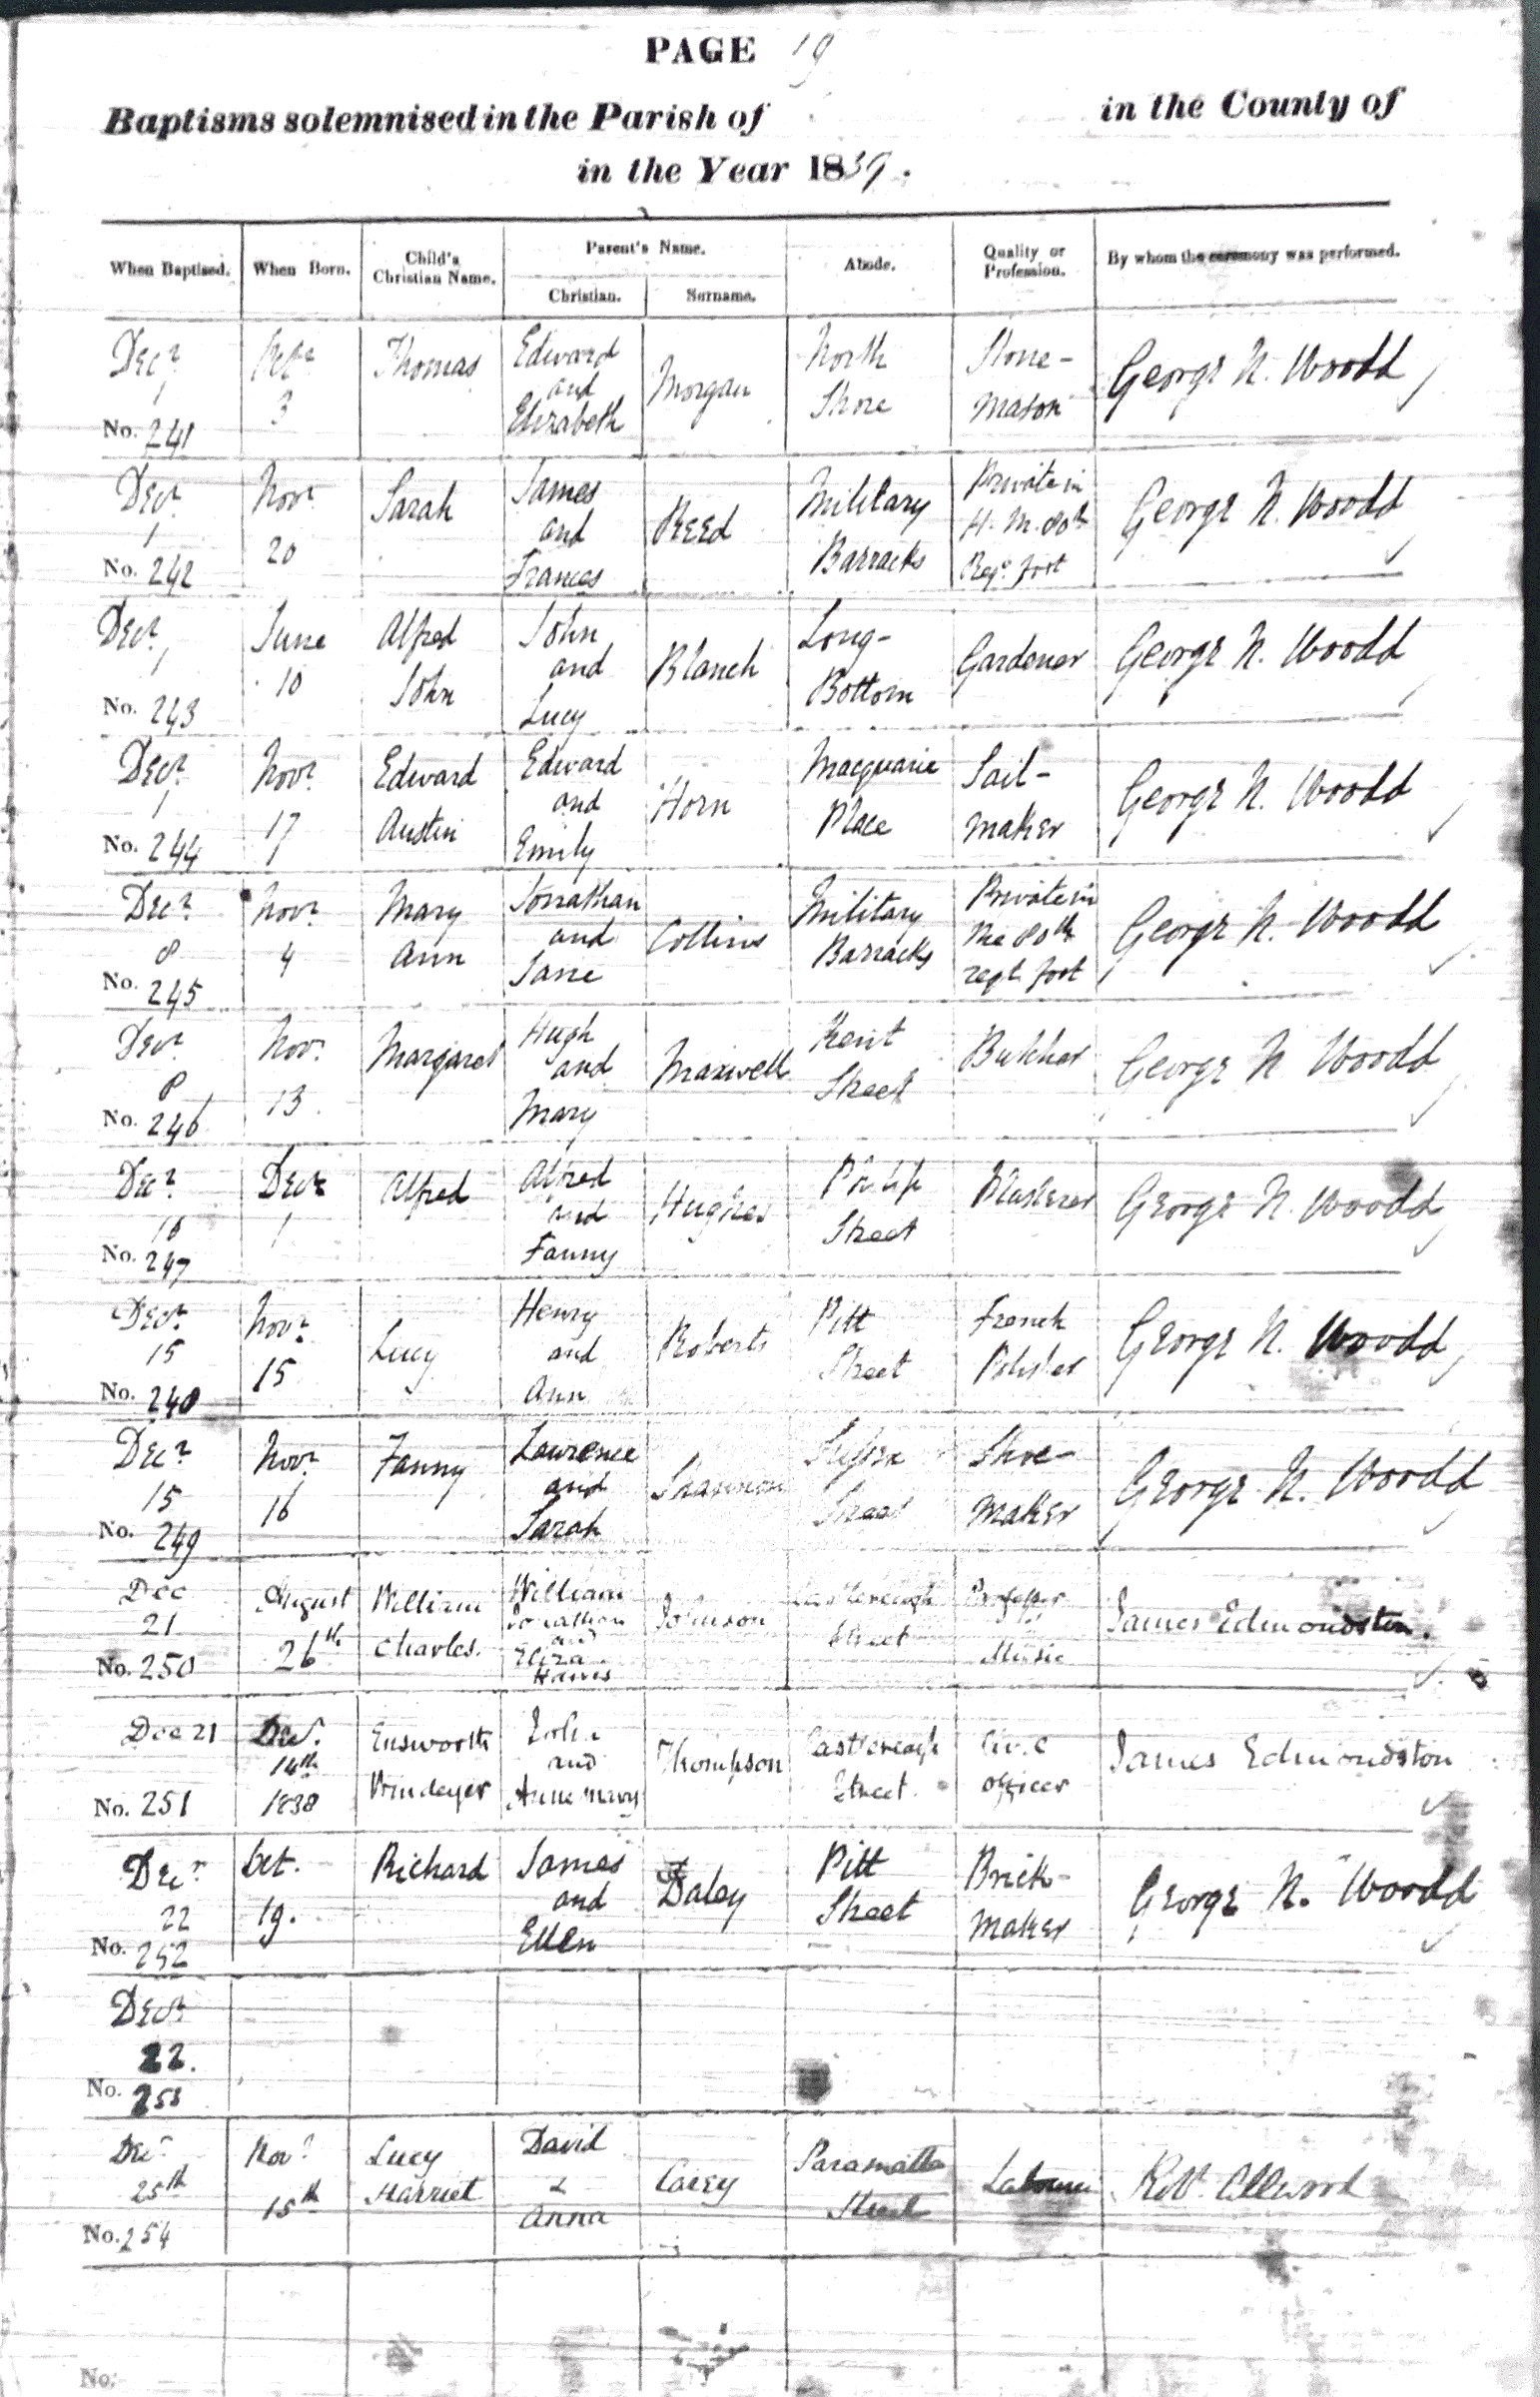 PAGE 19
Baptisms solemnised in the Parish of in the County of
in the Year 1839.
When Baptised. When Born. Child's Christian Name. Parent's Name. Abode. Quality or Profession. By whom the ceremony was performed.
Christian. Surname.
Decr Thomas Edward North Stone- George N. Woodd
1 3 and Morgan Shore Mason
No. 241 Elizabeth
Decr Novr Sarah James Military Private in George N. Woodd
1 20 and Reed Barracks H. M. 80th
No. 242 Frances Regt foot
Decr June Alfred John Long- Gardener George N. Woodd
1 10 John and Blanch Bottom
No. 243 Lucy
Decr Novr Edward Edward Macquarie Sail- George N. Woodd
1 17 Austin and Horn Place maker
No. 244 Emily
Decr Novr Mary Jonathan Military Private in George N. Woodd
8 4 Ann and Collins Barracks the 80th
No. 245 Jane regt foot
Decr Novr Margaret Hugh Kent Butcher George N. Woodd
8 13 and Maxwell Street
No. 246 Mary
Decr Decr Alfred Alfred Philip Plasterer George N. Woodd
1 and Hughes Street
No. 247 Fanny
Decr Novr Lucy Henry Pitt French George N. Woodd
15 15 and Roberts Street Polisher
No. 248 Ann
Decr Novr Fanny Lawrence Sussex Shoe- George N. Woodd
15 16 and Shannon Street maker
No. 249 Sarah
Dec August William William Johnson Castlereagh Professor James Edmondston.
21 26th Charles. Jonathan and Street Music
No. 250 Eliza
Dec 21 Decr. Ensworth John Thompson Castlereagh Civil James Edmondston
14th Windeyer and Street. officer
No. 251 1838 Anne Mary
Decr Oct. Richard James Daley Pitt Brick- George N. Woodd
22 19. and Street maker
No. 252 Ellen
Decr
22.
No. 253
Decr Novr Lucy David Paramatta Labourer Robt. Allwood
25th 15th Harriet & Carey Street
No. 254 Anna
No.